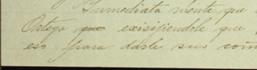 Inmediatamente que
Ortega que exisifiendole que
eso para darle sus com